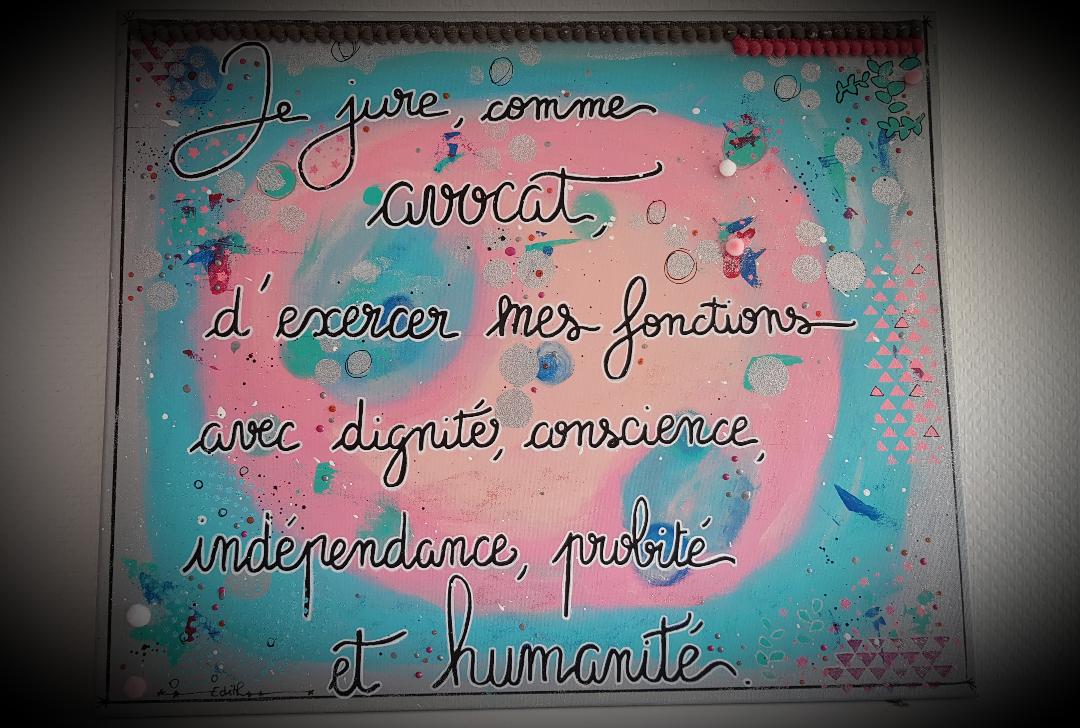 Je jure, comme
avocat,
d'exercer mes fonctions
avec dignité, conscience,
indépendance, probité
et humanité.
Edith